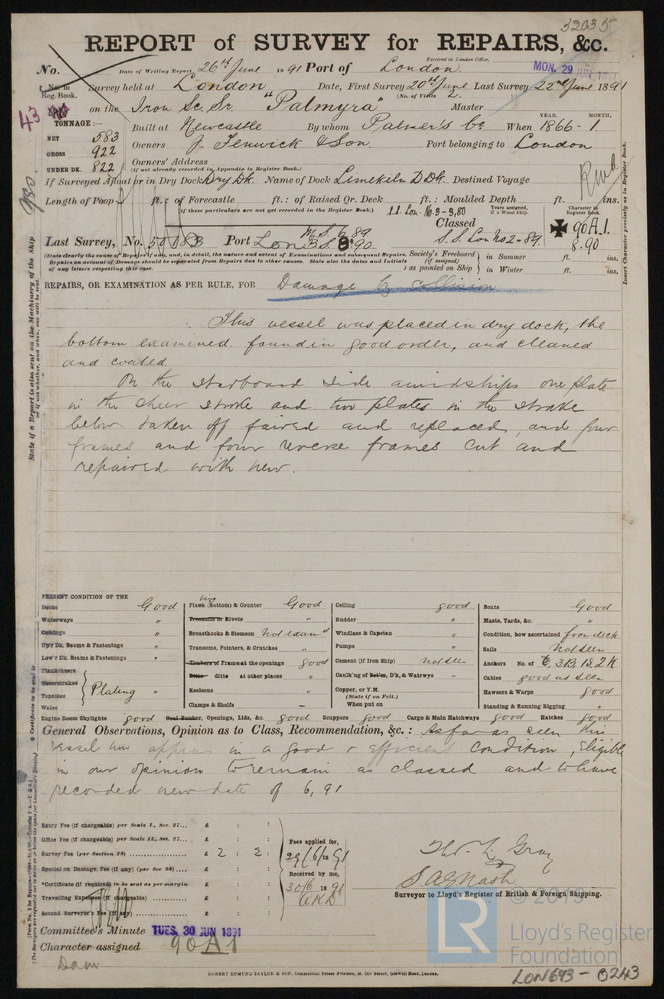 52035
REPORT of SURVEY for REPAIRS, &c.
No. Date of Writing Report 26th June 1891 Port of London Received in London Office, MON. 29 JUN
Survey held at London Date, First Survey 20th June Last Survey 22nd June 1891
Reg. Book. (No. of Visits 2)
43 on the Iron Sc. Sr. "Palmyra" Master
TONNAGE:— YEAR. MONTH.
NET 583 Built at Newcastle By whom Palmer's Co When 1866-1
GROSS 922 Owners J. Fenwick & Son Port belonging to London
UNDER DK. 822 Owners' Address
(if not already recorded in Appendix to Register Book.)
If Surveyed Afloat or in Dry Dock Dry Dk. Name of Dock Limekiln D Dk. Destined Voyage
Length of Poop ft.: of Forecastle ft.: of Raised Qr. Deck ft.: Moulded Depth ft. ins.
(If these particulars are not yet recorded in the Register Book.)
Years assigned, if a Wood Ship. Character in Register book.
Classed 90A.1.
Last Survey, No. Port Lon S.S. Lon No 2-89. 8.90
(State clearly the cause of Repairs if any, and, in detail, the nature and extent of Examinations and subsequent Repairs.
Repairs on account of Damage should be separated from Repairs due to other causes. State also the dates and initials
of any letters respecting this case.
Society's Freeboard (if assigned) as painted on Ship in Summer ft. ins.
in Winter ft. ins.
REPAIRS, OR EXAMINATION AS PER RULE, FOR Damage by collision
This vessel was placed in dry dock, the
bottom examined found in good order, and cleaned
and coated.
On the starboard side amidships one plate
in the sheer strake and two plates in the strake
below taken off faired and replaced, and four
frames and four reverse frames cut and
repaired with new.
PRESENT CONDITION OF THE
Decks Good Plank (Bottom) & Counter Good Ceiling good Boats Good
Waterways " Treenails or Rivets " Rudder " Masts, Yards, &c. "
Coamings " Breasthooks & Stemson Not exam'd Windlass & Capstan " Condition, how ascertained from deck
Up'r Dk. Beams & Fastenings " Transoms, Pointers, & Crutches " Pumps " Sails Not seen
Low'r Dk. Beams & Fastenings " Timbers of Frame at the openings good Cement (if Iron Ship) not seen Anchors No. of
Plankshears Ditto ditto at other places " Caulk'ng of Bottm, D'k, & Waterwys " Cables good as seen
Sheerstrakes Plating " Keelsons " Copper, or Y.M. Hawsers & Warps good
Topsides (State if on Felt.)
Wales Clamps & Shelfs – When put on Standing & Running Rigging "
Engine Room Skylights good Coal Bunker, Openings, Lids, &c. good Scuppers good Cargo & Main Hatchways good Hatches good
General Observations, Opinion as to Class, Recommendation, &c.: As far as seen this
vessel now appears in a good & efficient condition, eligible
in our opinion to remain as classed and to have
recorded new date of 6, 91
Entry Fee (if chargeable) per Scale I., Sec. 27... £ : :
Office Fee (if chargeable) per Scale II., Sec. 27... £ : : Fees applied for,
Survey Fee (per Section 28) £ 2 : 2 : 29/6/91
Special on Damage. Fee (if any) (per Sec. 28) £ : : Received by me,
*Certificate (if required) to be sent as per margin 30/6 1891
Travelling Expenses (if chargeable) £ : :
Second Surveyor's Fee (if any) £ : :
Thos. L. Gray
S.A. Nash
Surveyor to Lloyd's Register of British & Foreign Shipping.
Committee's Minute TUES. 30 JUN 1891
Character assigned 90A1
Dam
ROBERT EDMUND TAYLOR & SON, Commercial Steam Printers, 19, Old Street, Goswell Road, London.
LR
© 2019
Lloyd's Register
Foundation
LON693-0243